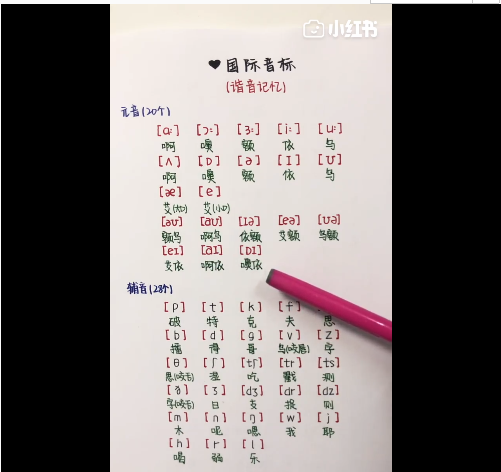 小红书
♥国际音标
(谐音记忆)
元音(20个)
[ɑ:] [ɔ:] [ɜ:] [i:] [u:]
啊 噢 额 依 乌
[ʌ] [ɒ] [ə] [I] [ʊ]
啊 噢 额 依 乌
[æ] [e]
艾(大口) 艾(小口)
[əʊ] [aʊ] [Iə] [eə] [ʊə]
额乌 啊乌 依额 艾额 乌额
[eI] [aI] [ɒI]
艾依 啊依 噢依
辅音(28个)
[p] [t] [k] [f]
破 特 克 夫 思
[b] [d] [g] [v] [z]
播 得 哥 乌(咬唇) 字
[θ] [ʃ] [tʃ] [tr] [ts]
思(咬舌) 湿 吃 戳 刺
[ð] [ʒ] [dʒ] [dr] [dz]
字(咬舌) 日 支 捉 则
[m] [n] [ŋ] [w] [j]
木 呢 嗯 我 耶
[h] [r] [l]
喝 弱 乐